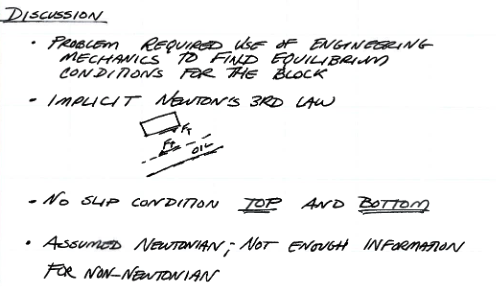 DISCUSSION
• PROBLEM REQUIRED USE OF ENGINEERING
MECHANICS TO FIND EQUILIBRIUM
CONDITIONS FOR THE BLOCK
• IMPLICIT NEWTON'S 3RD LAW
Ft
Ft
OIL
• NO SLIP CONDITION TOP AND BOTTOM
• ASSUMED NEWTONIAN; NOT ENOUGH INFORMATION
FOR NON-NEWTONIAN